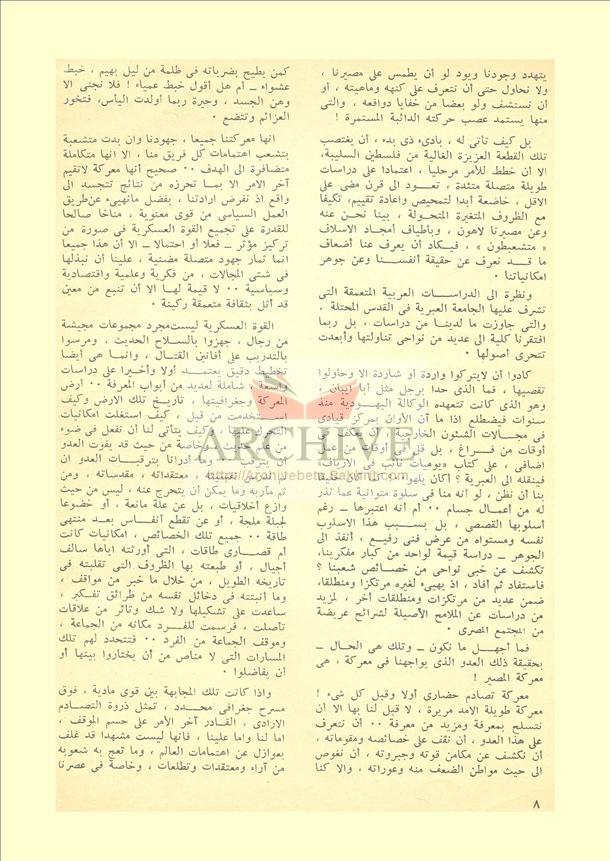 يتهدد وجودنا ويود لو أن يطمس على مصيرنا ،
ولا نحاول حتى أن نتعرف على كنهه وماهيته ، أو
أن نستشف ولو بعضا من خفايا دوافعه ، والتى
منها يستمد عصب حركته الدائبة المستمرة !
بل كيف تأتى له ، بادىء ذى بدء ، أن يغتصب
تلك القطعة العزيزة الغالية من فلسطين السليبة،
الا ان خطط للأمر مرحليا ، اعتمادا على دراسات
طويلة متصلة متئدة ، تعود الى قرن مضى على
الاقل ، خاضعة أبدا لتمحيص واعادة تقييم، تكيفا
مع الظروف المتغيرة المتحولة ، بينا نحن عنه
وعن مصيرنا لاهون ، وباطياف أمجاد الاسلاف
« متشعبطون » ، فيكاد أن يعرف عنا أضعاف
ما قد نعرف عن حقيقة أنفسنا وعن جوهر
امكانياتنا .
ونظرة الى الدراسات العربية المتعمقة التى
تشرف عليها الجامعة العبرية فى القدس المحتلة ،
والتى جاوزت ما لدينا من دراسات ، بل ربما
افتقرنا كلية الى عديد من نواحى تناولتها وأبعدت
تتحرى أصولها .
كادوا أن لايتركوا واردة أو شاردة الا وحاولوا
تقصيها ، فما الذى حدا برجل مثل أبا ايبان ،
وهو الذى كانت تتعهده الوكالة اليهودية منذ
سنوات فيضطلع اذا ما آن الأوان بمركز قيادى
فى مجالات الشئون الخارجية ، أن يعكف فى
أوقات من فراغ ، بل قل فى أوقات من عمل
اضافى ، على كتاب «يوميات نائب فى الأرياف»
فينقله الى العبرية ؟ أكان يلهو
بنا أن نظن ، لو أنه منا فى سلوة متوانية عما نذر
له من أعمال جسام ٠٠ أم أنه اعتبرها ــ رغم
أسلوبها القصصى ، بل بسبب هذا الاسلوب
نفسه ومستواه من عرض فنى رفيع ، أنفذ الى
الجوهر ــ دراسة قيمة لواحد من كبار مفكرينا،
تكشف عن خبى نواحى من خصائص شعبنا ؟
فاستفاد ثم أفاد ، اذ يهيىء لغيره مرتكزا ومنطلقا،
ضمن عديد من مرتكزات ومنطلقات أخر ، لمزيد
من دراسات عن الملامح الأصيلة لشرائح عريضة
من المجتمع المصرى .
فما أجهل ما نكون ــ وتلك هى الحال ــ
بحقيقة ذلك العدو الذى يواجهنا فى معركة ، هى
معركة المصير !
معركة تصادم حضارى أولا وقبل كل شىء !
معركة طويلة الامد مريرة ، لا قبل لنا بها الا أن
نتسلح بمعرفة ومزيد من معرفة ٠٠ أن نتعرف
على هذا العدو ، أن نقف على خصائصه ومقوماته ،
أن نكشف عن مكامن قوته وجبروته ، أن نغوص
الى حيث مواطن الضعف منه وعوراته ، والا كنا
كمن يطيح بضرباته فى ظلمة من ليل بهيم ، خبط
عشواء ــ أم هل أقول خبط عمياء ! فلا نجنى الا
وهن الجسد ، وحيرة ربما أولدت اليأس، فتخور
العزائم وتتضع .
انها معركتنا جميعا ، جهودنا وان بدت متشعبة
بتشعب اهتمامات كل فريق منا ، الا انها متكاملة
متضافرة الى الهدف ٠٠ صحيح أنها معركة لاتقيم
آخر الامر الا بما تحرزه من نتائج تتجسد الى
واقع اذ نفرض ارادتنا ، بفضل مانهيىء عن طريق
العمل السياسى من قوى معنوية ، مناخا صالحا
للقدرة على تجميع القوة العسكرية فى صورة من
تركيز مؤثر ــ فعلا أو احتمالا ــ الا أن هذا جميعا
انما ثمار جهود متصلة مضنية ، علينا أن نبذلها
فى شتى المجالات ، من فكرية وعلمية واقتصادية
وسياسية ٠٠ لا قيمة لها الا أن تنبع من معين
قد أثل بثقافة متعمقة ركينة .
القوة العسكرية ليست مجرد مجموعات مجيشة
من رجال ، جهزوا بالسلاح الحديث ، ومرسوا
بالتدريب على أفانين القتال ، وانما هى أيضا
تخطيط دقيق يعتمد أولا وأخيرا على دراسات
واسعة ، شاملة لعديد من أبواب المعرفة ٠٠ أرض
المعركة وجغرافيتها ، تاريخ تلك الارض وكيف
استخدمت من قبل ، كيف استغلت امكانيات
التحرك عليها ، وكيف يتأتى لنا أن نفعل فى ضوء
من علم حديث وبخاصة من حيث قد يفوت العدو
أن يترقب وما أدرانا بترقبات العدو ان
لم نخبر نفسيته ، معتقداته ، مقدساته ، ومن
ثم مآربه وما يمكن أن يتحرج عنه ، ليس من حيث
وازع أخلاقيات ، بل عن علة مانعة ، أو خضوعا
لجبلة ملجة ، أو عن تقطع أنفاس بعد منتهى
طاقة ٠٠ جميع تلك الخصائص ، امكانيات كانت
أم قصارى طاقات ، التى أورثته اياها سالف
أجيال ، أو طبعته بها الظروف التى تقلبته فى
تاريخه الطويل ، من خلال ما خبر من مواقف ،
وما أنبتته فى دخائل نفسه من طرائق تفكير ،
ساعدت على تشكيلها ولا شك وتأثر من علاقات
تأصلت ، فرسمت للفرد مكانه من الجماعة ،
وموقف الجماعة من الفرد ٠٠ فتتحدد لهم تلك
المسارات التى لا مناص من أن يختاروا بينها أو
أن يفاضلوا .
واذا كانت تلك المجابهة بين قوى مادية ، فوق
مسرح جغرافى محدد ، تمثل ذروة التصادم
الارادى ، القادر آخر الأمر على حسم الموقف ،
اما لنا واما علينا ، فانها ليست مشهدا قد غلف
بعوازل عن اهتمامات العالم ، وما تعج به شعوبه
من آراء ومعتقدات وتطلعات ، وخاصة فى عصرنا
٨
ARCHIVE
http://Archivebeta.Sakhrit.com